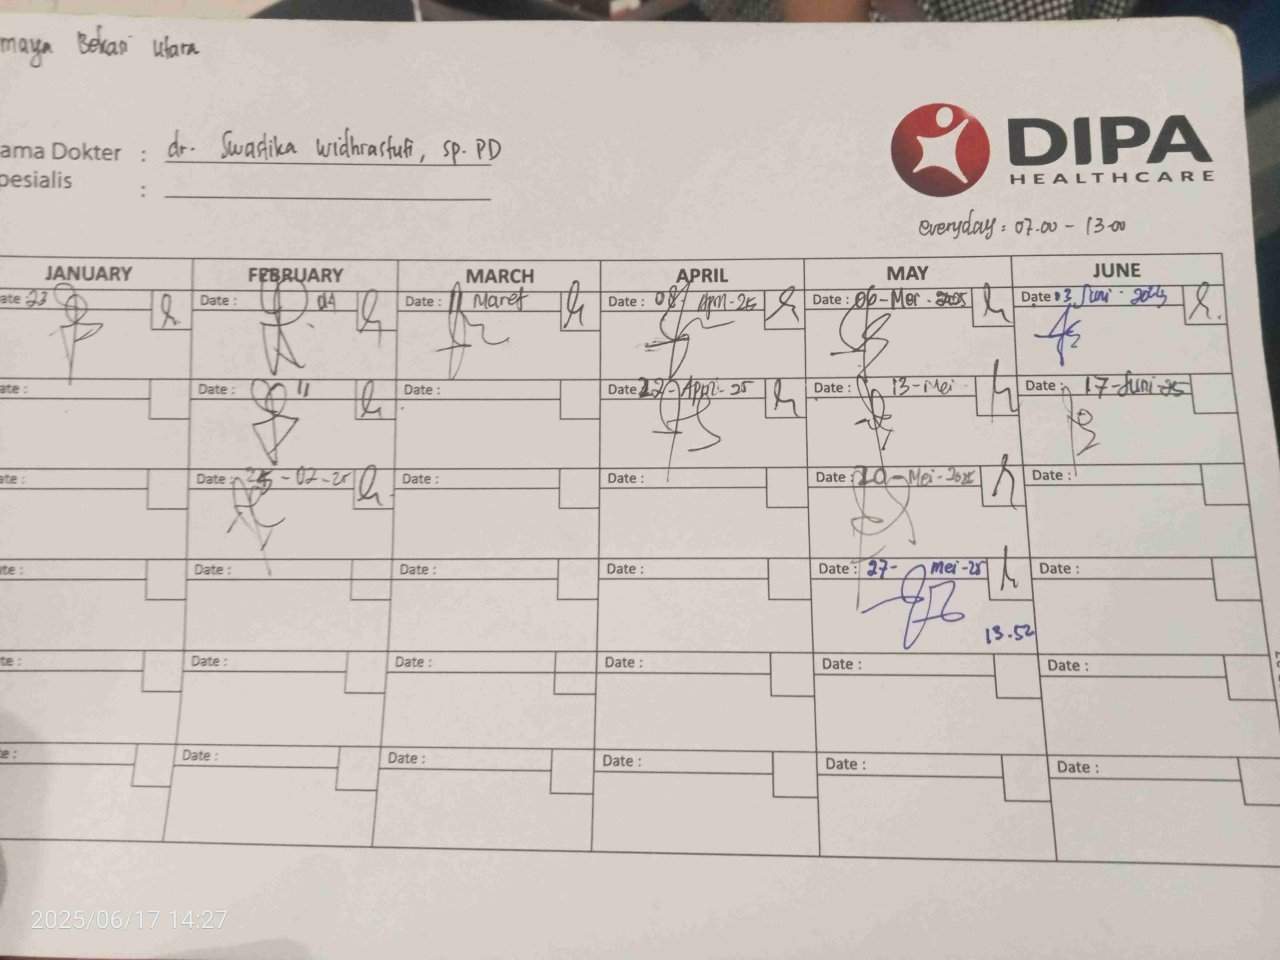 maya Bekasi Utara
ama Dokter : dr. Swadika Widhrastuti, Sp. PD
pesialis :
DIPA
HEALTHCARE
everyday : 07.00 - 13.00
JANUARY FEBRUARY MARCH APRIL MAY JUNE
ate 23 Date : 04 Date : Maret Date : 08 - Apri - 25 Date : 06 - Mei - 2025 Date : 03 Juni - 2025
ate : Date : 11 Date : Date 22 - Appri - 25 Date : 13 - Mei Date : 17 - Juni - 25
te : Date : 25 - 02 - 25 Date : Date : Date : 20 - Mei - 2025 Date :
te : Date : Date : Date : Date : 27 - mei - 25 Date :
13.52
te : Date : Date : Date : Date : Date :
e : Date : Date : Date : Date : Date :
2025/06/17 14:27